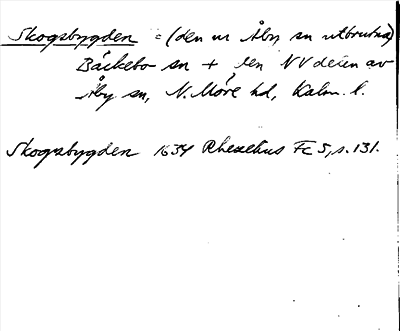 Skogsbygden = (den ur Åby sn utbrutna)
Bäckebo sn + den NV delen av
Åby sn, N. Möre hd, Kalm. l.
Skogsbygden 1634 Rhezelius Fc 5, s. 131.